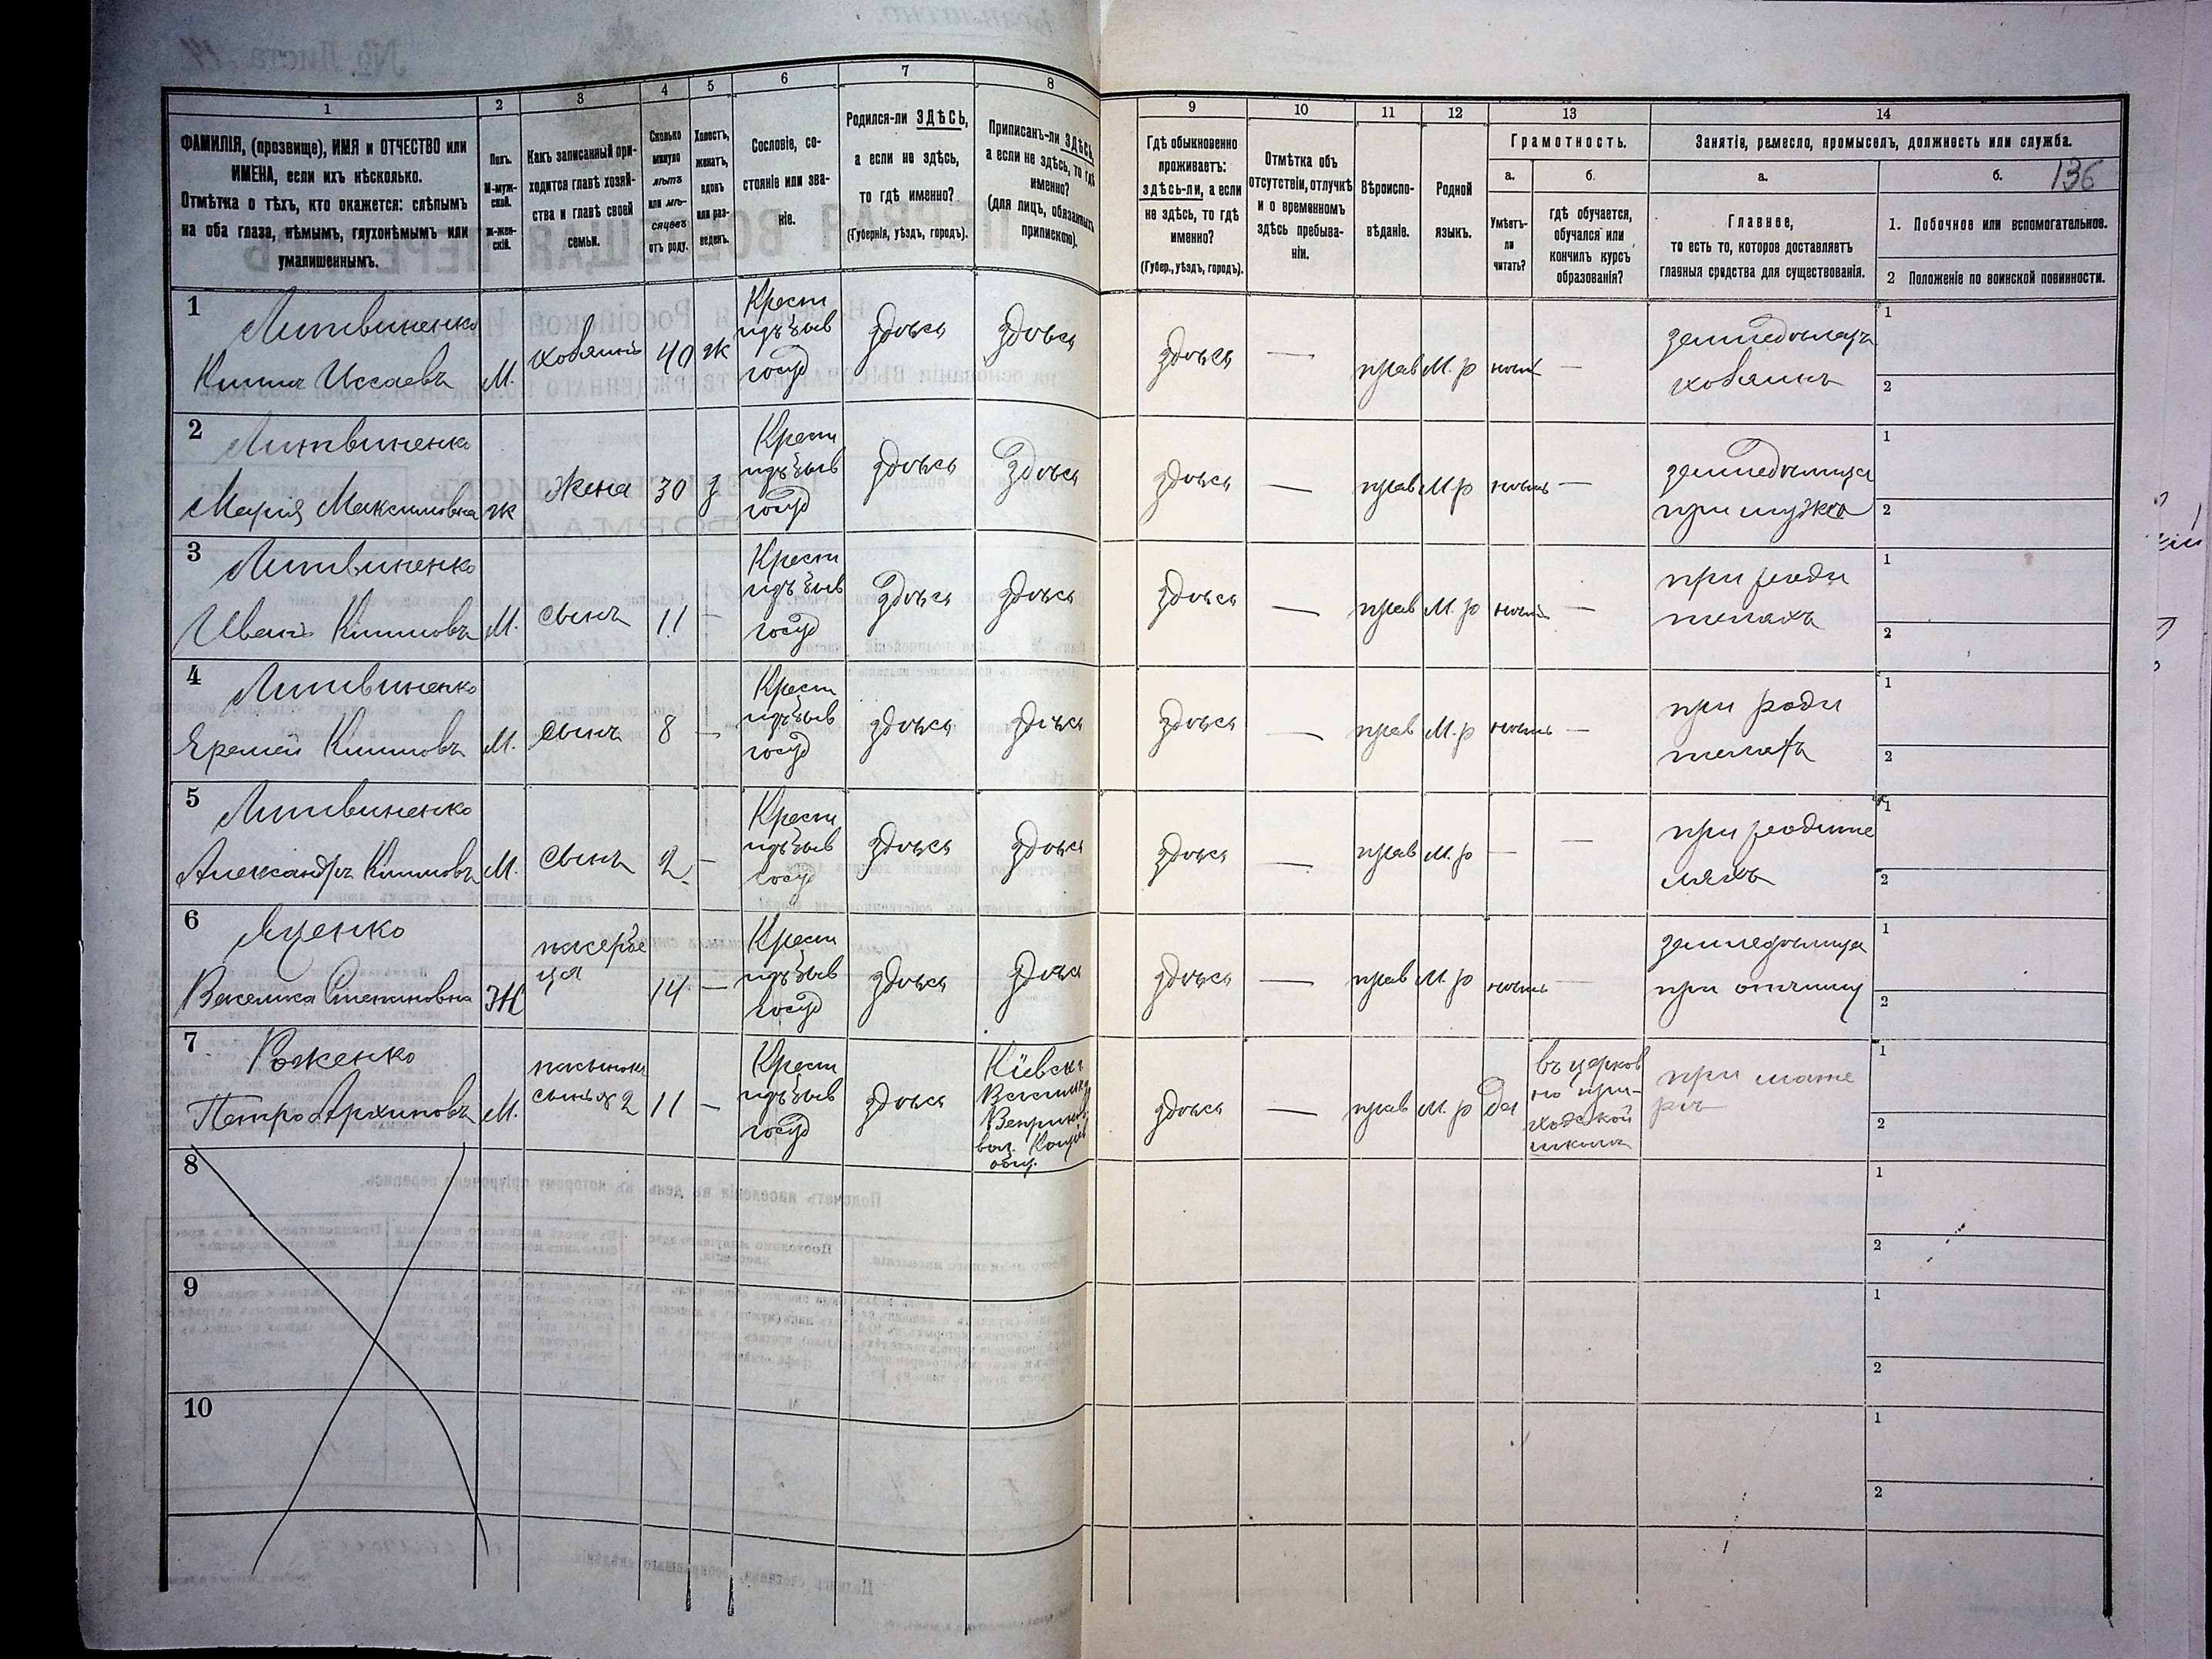 136
1 2 3 4 5 6 7 8 9 10 11 12 13 14
ФАМИЛІЯ, (прозвище), ИМЯ и ОТЧЕСТВО или
ИМЕНА, если ихъ нѣсколько.
Отмѣтка о тѣхъ, кто окажется: слѣпымъ
на оба глаза, нѣмымъ, глухонѣмымъ или
умалишеннымъ.
Полъ.
М-муж-
ской.
Ж-жен-
скій.
Какъ записанный при-
ходится главѣ хозяй-
ства и главѣ своей
семьи.
Сколько
минуло
лѣтъ
или мѣ-
сяцевъ
отъ роду.
Холостъ,
женатъ,
вдовъ
или раз-
веденъ.
Сословіе, со-
стояніе или зва-
ніе.
Родился-ли ЗДѢСЬ,
а если не здѣсь,
то гдѣ именно?
(Губернія, уѣздъ, городъ).
Приписанъ-ли ЗДѢСЬ,
а если не здѣсь, то гдѣ
именно?
(для лицъ, обязанныхъ
припискою).
Гдѣ обыкновенно
проживаетъ:
здѣсь-ли, а если
не здѣсь, то гдѣ
именно?
(Губер., уѣздъ, городъ).
Отмѣтка объ
отсутствіи, отлучкѣ
и о временномъ
здѣсь пребыва-
ніи.
Вѣроиспо-
вѣданіе.
Родной
языкъ.
Грамотность.
а.
Умѣетъ-
ли
читать?
б.
гдѣ обучается,
обучался или
кончилъ курсъ
образованія?
Занятіе, ремесло, промыселъ, должность или служба.
а.
Главное,
то есть то, которое доставляетъ
главныя средства для существованія.
б.
1. Побочное или вспомогательное.
2 Положеніе по воинской повинности.
1
Литвиненко
Климъ Исаевъ
М.
хозяинъ
40
ж
Крест
изъ быв
госуд
здѣсь
здѣсь
здѣсь
—
прав
М. р
нѣтъ
—
земледѣлецъ
хозяинъ
1
2
2
Литвиненко
Марія Максимовна
ж
жена
30
з
Крест
изъ быв
госуд
здѣсь
здѣсь
здѣсь
—
прав
М р
нѣтъ
—
земледѣлица
при мужѣ
1
2
3
Литвиненко
Иванъ Климовъ
М.
сынъ
11
—
Крест
изъ быв
госуд
здѣсь
здѣсь
здѣсь
—
прав
М. р
нѣтъ
—
при роди
теляхъ
1
2
4
Литвиненко
Яремѣй Климовъ
М.
сынъ
8
—
Крест
изъ быв
госуд
здѣсь
здѣсь
здѣсь
—
прав
М. р
нѣтъ
—
при роди
теляхъ
1
2
5
Литвиненко
Александръ Климовъ
М.
сынъ
2
—
Крест
изъ быв
госуд
здѣсь
здѣсь
здѣсь
—
прав
М. р
—
—
при родите
ляхъ
1
2
6
Яценко
Василиса Степановна
Ж
14
—
Крест
изъ быв
госуд
здѣсь
здѣсь
здѣсь
—
прав
М. р
нѣтъ
—
земледѣлица
при отчиму
1
2
7
Роженко
Петро Архиповъ
М.
11
—
Крест
изъ быв
госуд
здѣсь
Кіевск.
Васильк
Веприк
вол.
общ.
здѣсь
—
прав
М. р
да
въ церков
но при-
ходской
школѣ
при мате
ри
1
2
8
1
2
9
1
2
10
1
2